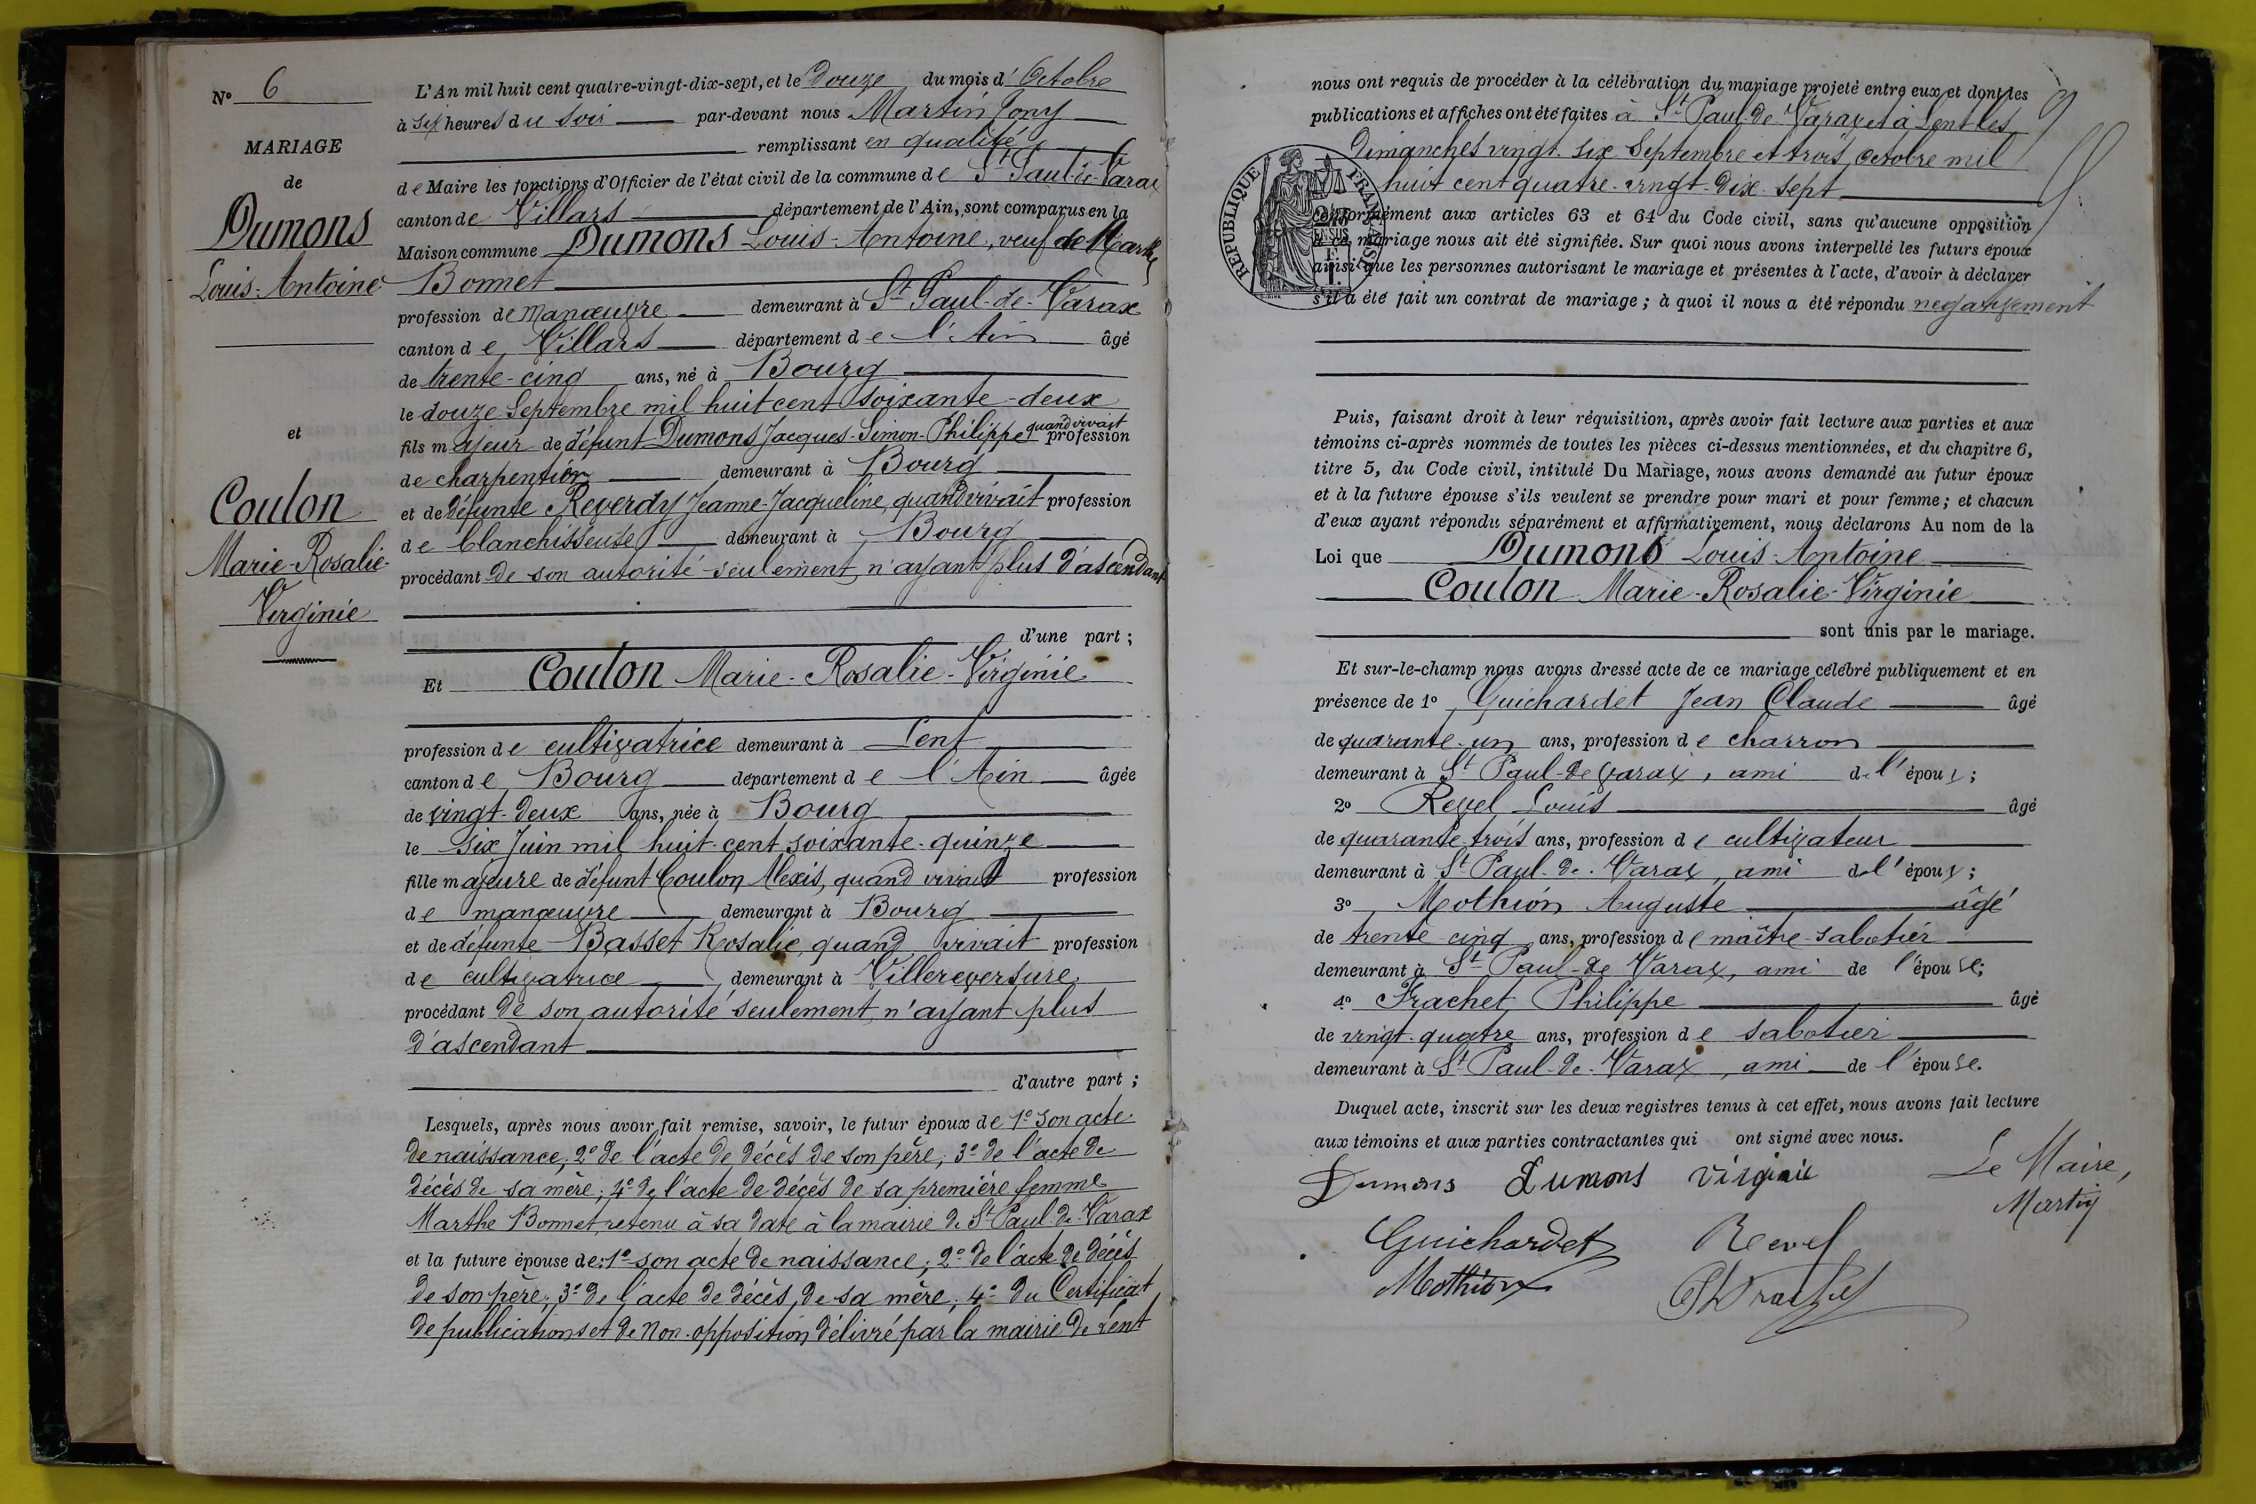 N° 6
MARIAGE
de
Dumons
Louis-Antoine
et
Coulon
Marie-Rosalie-
Virginie
L'An mil huit cent quatre-vingt-dix-sept, et le douze du mois d'Octobre
à six heures du soir par-devant nous Martin Tony
remplissant en qualité
de Maire les fonctions d'Officier de l'état civil de la commune de St Paul-de-Varax
canton de Villars département de l'Ain, sont comparus en la
Maison commune Dumons Louis-Antoine, veuf de Marthe
Bonnet
profession de manœuvre demeurant à St Paul-de-Varax
canton de Villars département de l'Ain âgé
de trente-cinq ans, né à Bourg
le douze Septembre mil huit cent soixante-deux
fils majeur de défunt Dumons Jacques-Simon-Philippe quand vivait profession
de charpentier demeurant à Bourg
et de défunte Reverdy Jeanne-Jacqueline, quand vivait profession
de blanchisseuse demeurant à Bourg
procédant de son autorité seulement, n'ayant plus d'ascendant
d'une part ;
Et Coulon Marie-Rosalie-Virginie
profession de cultivatrice demeurant à Lent
canton de Bourg département de l'Ain âgée
de vingt-deux ans, née à Bourg
le six Juin mil huit-cent soixante-quinze
fille majeure de défunt Coulon Alexis, quand vivait profession
de manœuvre demeurant à Bourg
et de défunte Basset Rosalie, quand vivait profession
de cultivatrice demeurant à Villereversure
procédant de son autorité seulement n'ayant plus
d'ascendant
d'autre part ;
Lesquels, après nous avoir fait remise, savoir, le futur époux de 1° son acte
de naissance; 2° de l'acte de décès de son père; 3° de l'acte de
décès de sa mère; 4° de l'acte de décès de sa première femme
Marthe Bonnet, retenu à sa date à la mairie de St Paul-de-Varax
et la future épouse de: 1° son acte de naissance; 2° de l'acte de décès
de son père; 3° de l'acte de décès de sa mère; 4° du Certificat
de publications et de non-opposition délivré par la mairie de Lent
nous ont requis de procéder à la célébration du mariage projeté entre eux et dont les
publications et affiches ont été faites à St Paul-de-Varax et à Lent les
Dimanches vingt-six Septembre et trois Octobre mil
huit cent quatre-vingt-dix-sept
RÉPUBLIQUE FRANÇAISE
conformément aux articles 63 et 64 du Code civil, sans qu'aucune opposition
à ce mariage nous ait été signifiée. Sur quoi nous avons interpellé les futurs époux
ainsi que les personnes autorisant le mariage et présentes à l'acte, d'avoir à déclarer
s'il a été fait un contrat de mariage ; à quoi il nous a été répondu négativement
Puis, faisant droit à leur réquisition, après avoir fait lecture aux parties et aux
témoins ci-après nommés de toutes les pièces ci-dessus mentionnées, et du chapitre 6,
titre 5, du Code civil, intitulé Du Mariage, nous avons demandé au futur époux
et à la future épouse s'ils veulent se prendre pour mari et pour femme ; et chacun
d'eux ayant répondu séparément et affirmativement, nous déclarons Au nom de la
Loi que Dumons Louis-Antoine
Coulon Marie-Rosalie-Virginie
sont unis par le mariage.
Et sur-le-champ nous avons dressé acte de ce mariage célébré publiquement et en
présence de 1° Guichardet Jean Claude âgé
de quarante-un ans, profession de charron
demeurant à St Paul-de-Varax, ami de l'époux ;
2° Revel Louis âgé
de quarante-trois ans, profession de cultivateur
demeurant à St Paul-de-Varax, ami de l'époux ;
3° Mothion Auguste âgé
de trente-cinq ans, profession de maître-sabotier
demeurant à St Paul-de-Varax, ami de l'épouse;
4° Frachet Philippe âgé
de vingt-quatre ans, profession de sabotier
demeurant à St Paul-de-Varax, ami de l'épouse.
Duquel acte, inscrit sur les deux registres tenus à cet effet, nous avons fait lecture
aux témoins et aux parties contractantes qui ont signé avec nous.
Dumons Dumons Virginie Le Maire,
Martin
Guichardet Revel
Mothion Ph Frachet